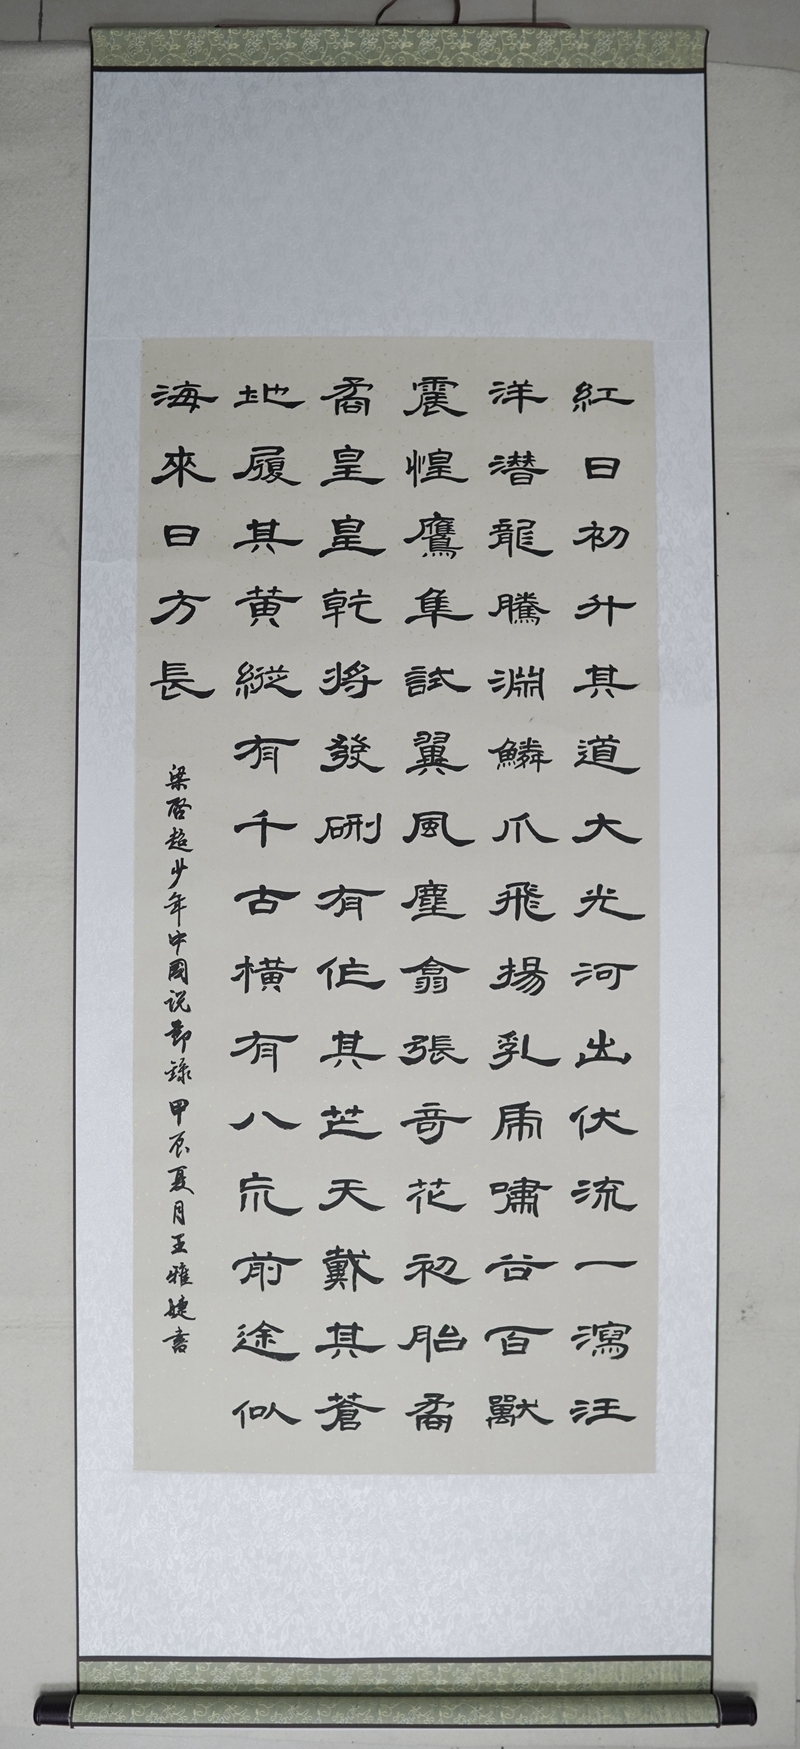 紅日初升其道大光河出伏流一瀉汪
洋潜龍騰淵鱗爪飛揚乳虎嘯谷百獸
震惶鷹隼試翼風塵翕張奇花初胎矞
矞皇皇乾將發硎有作其芒天戴其蒼
地履其黄縱有千古横有八荒前途似
海來日方長
梁啓超少年中國説節錄甲辰夏月王雅婕書